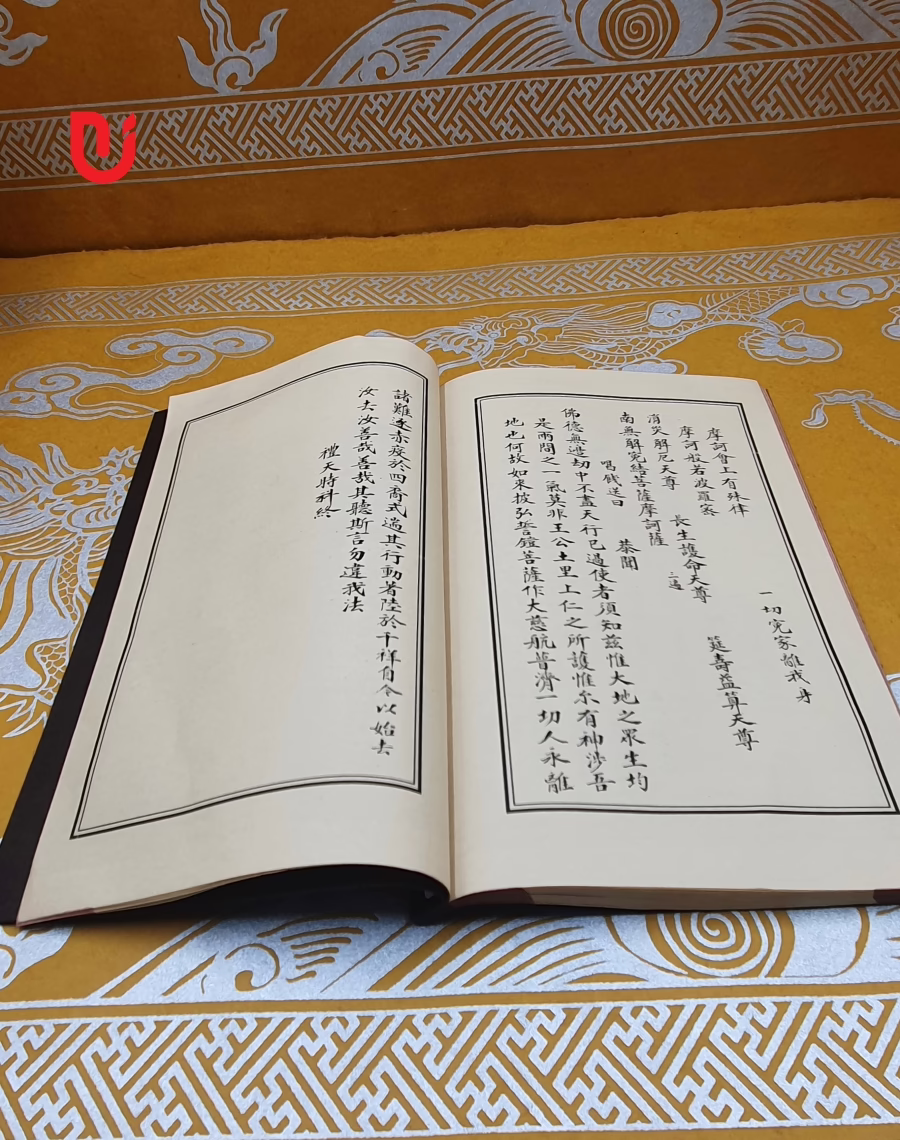 一切冤家離我身
摩訶會上有殊律 筵壽益算天尊
摩訶般若波羅密 長生護命天尊 三遍
消災解厄天尊
南無解冤結菩薩摩訶薩
唱錢送曰 恭聞
佛德無邊劫中不盡天行已過使者須知茲惟大地之眾生均
是兩間之一氣莫非王公土里上仁之所護惟尔有神涉吾
地也何故如來披弘誓鎧菩薩作大慈航普濟一切人永離
諸難逐赤疫於四裔式遄其行動著陸於千祥自今以始去
汝去汝善哉善哉其聽斯言勿違我法
禮天時科終